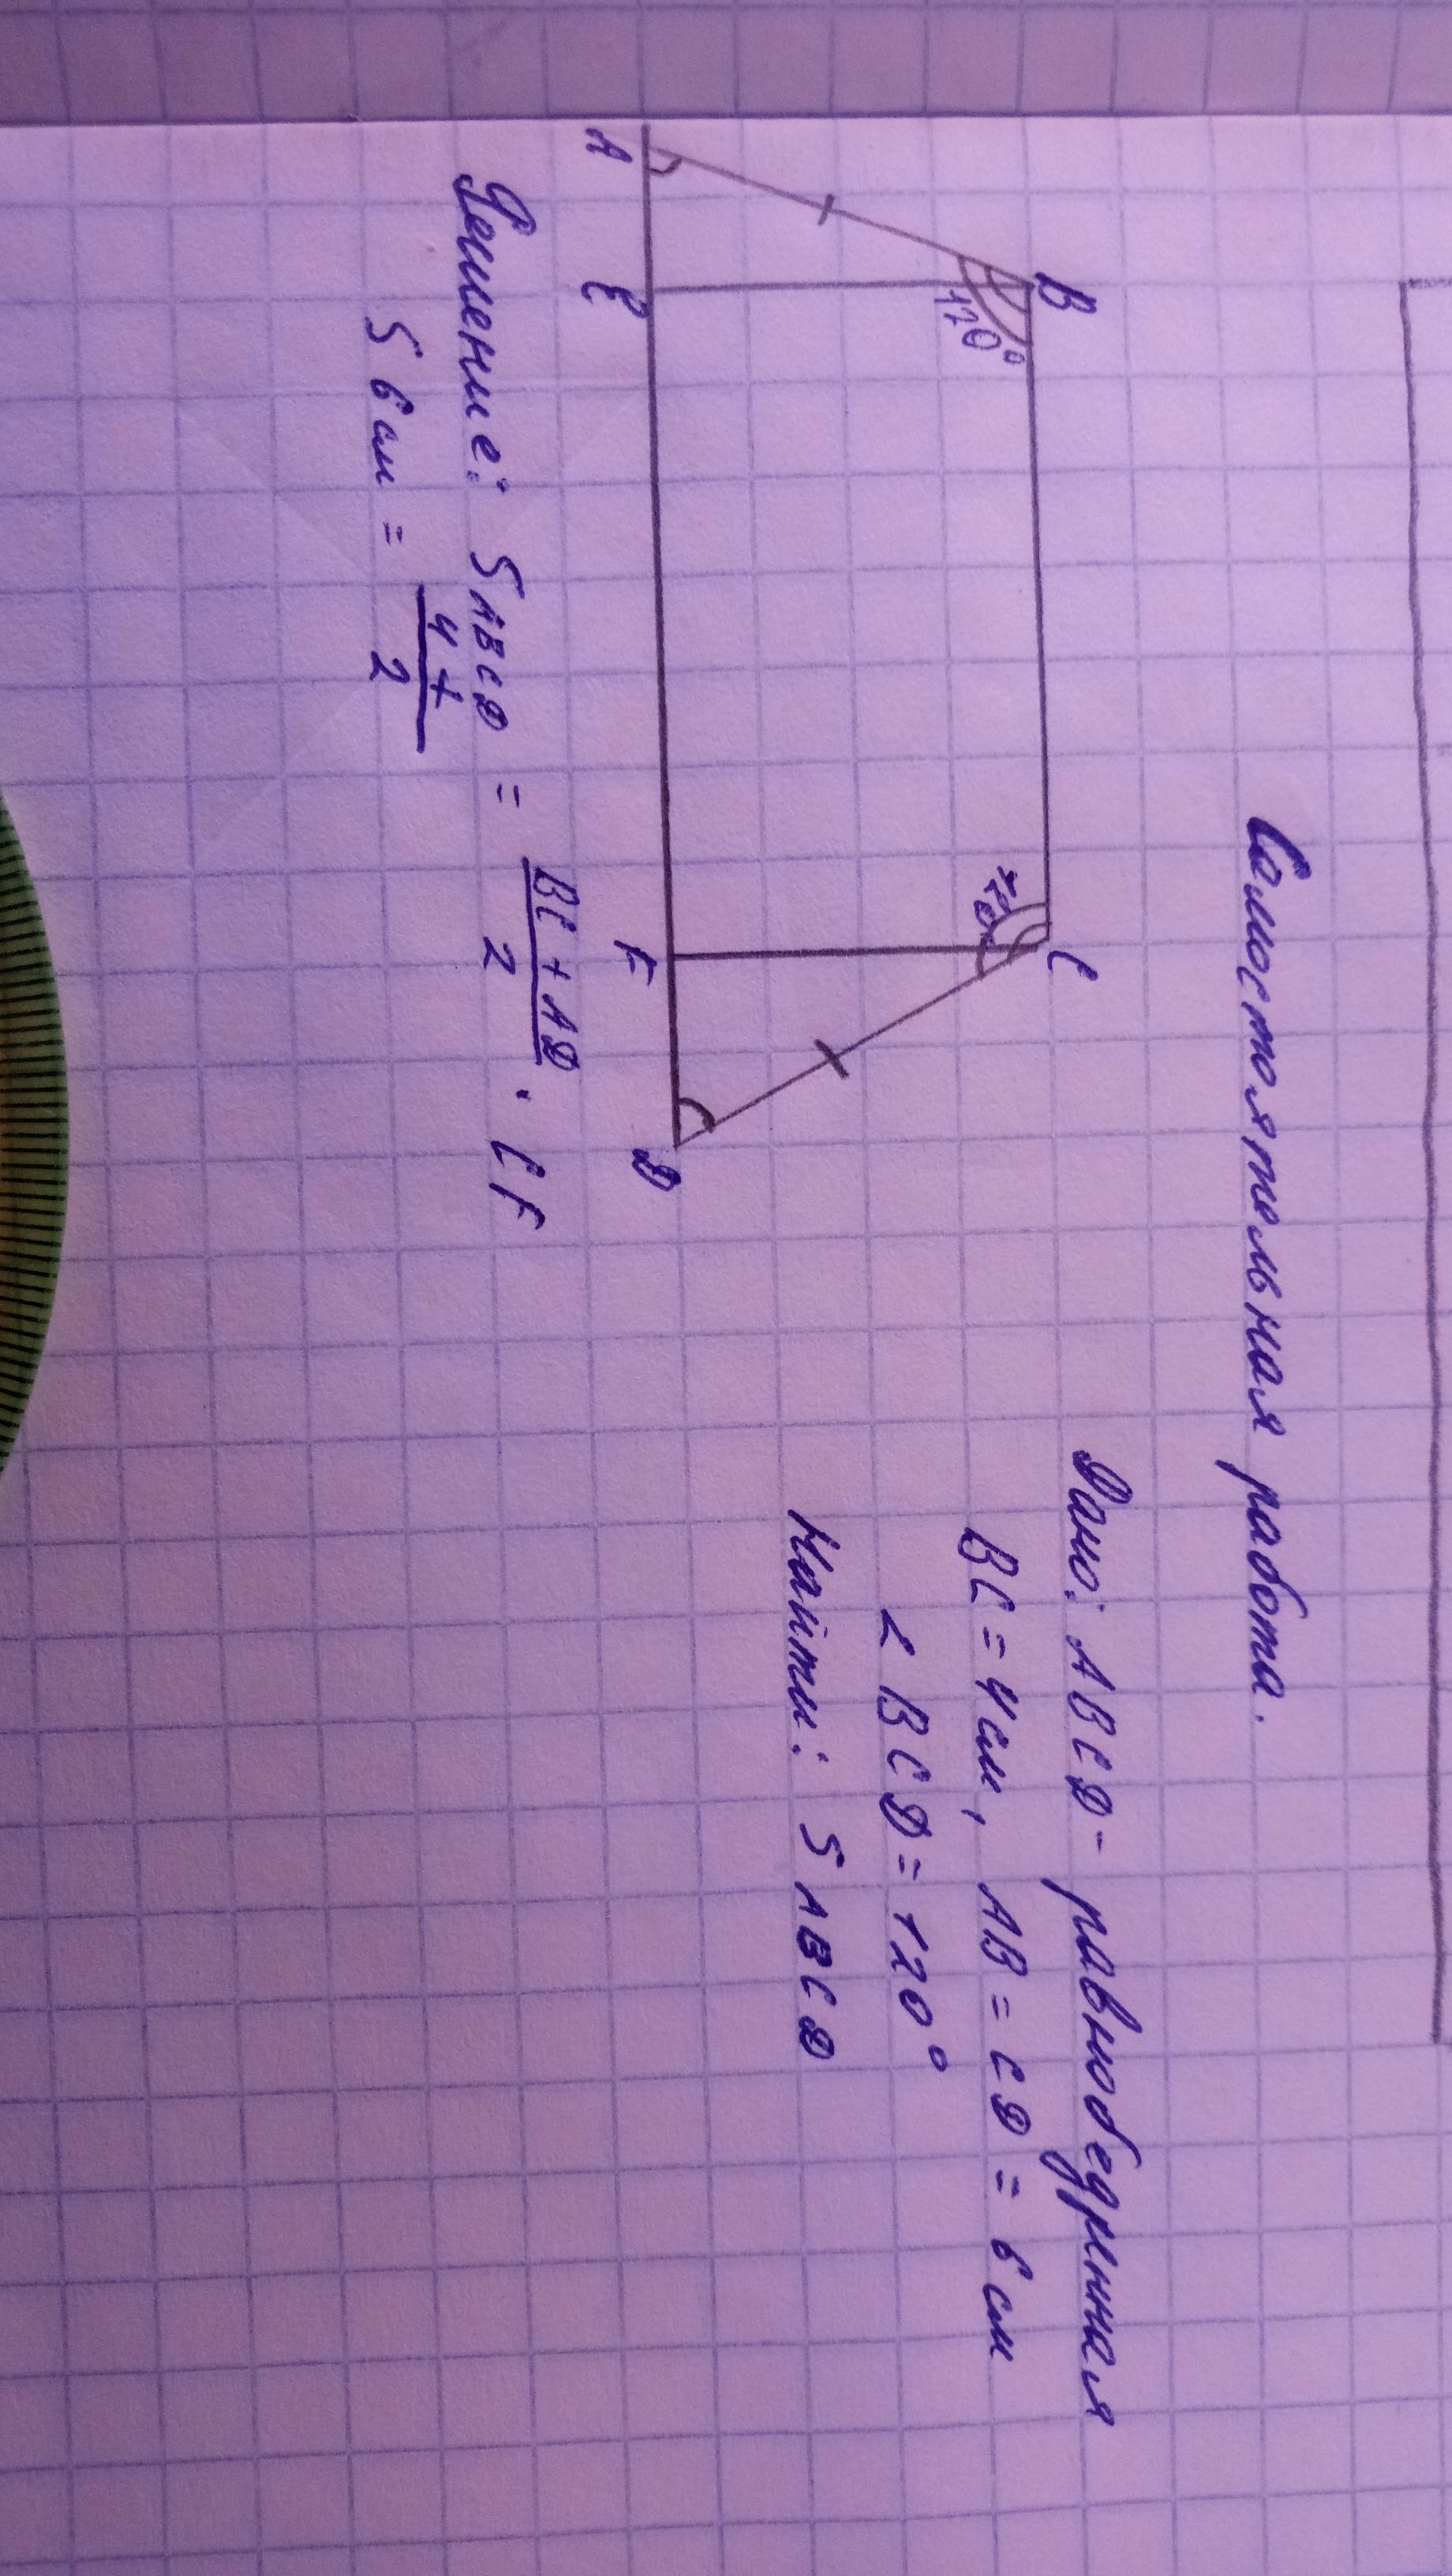 Самостоятельная работа.
Дано: ABCD - равнобедренная
BC = 4 см, AB = CD = 6 см
∠ BCD = 120°
Найти: S ABCD
B
C
120°
120°
A
E
F
D
Решение: S ABCD = (BC + AD)/2 · CF
S 6 см = (4 +)/2